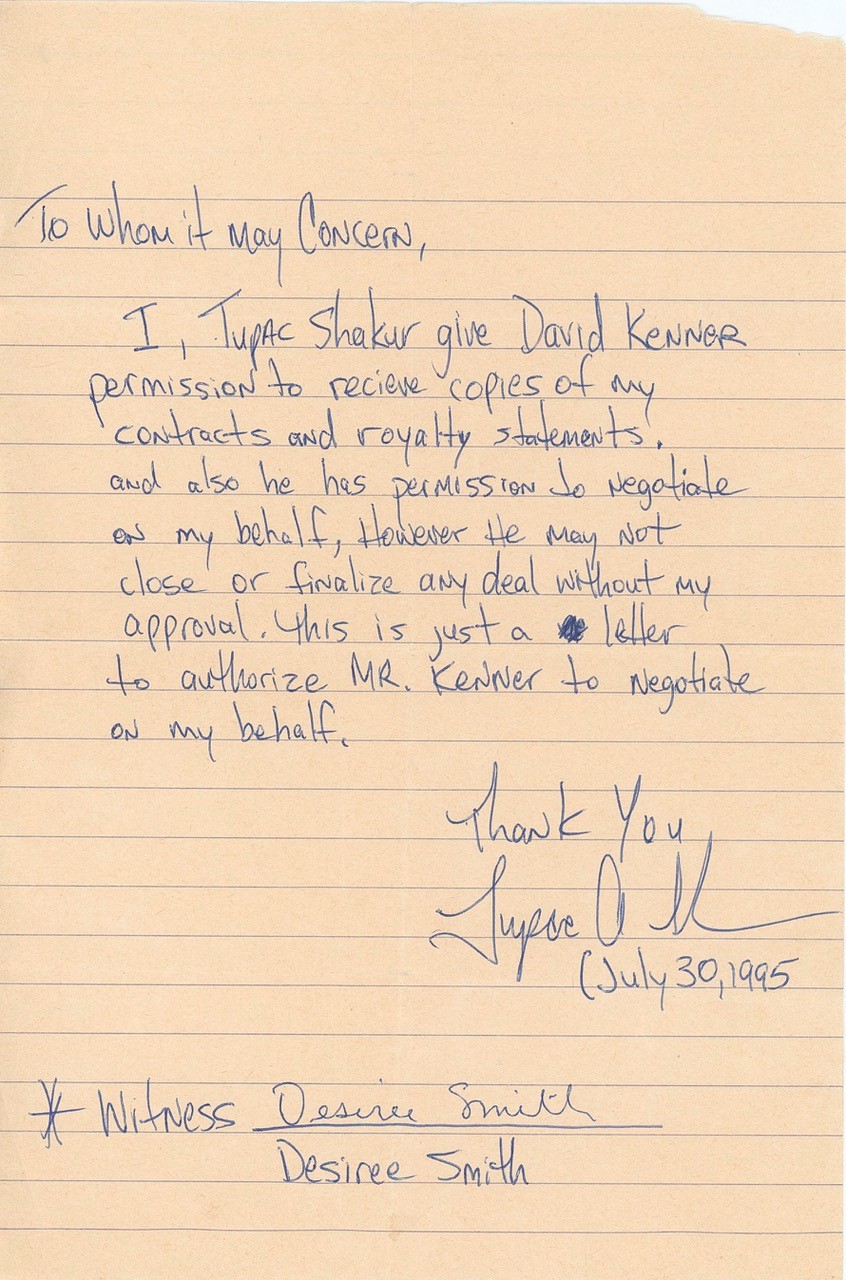 To Whom it May Concern,
I, Tupac Shakur give David Kenner
permission to recieve copies of my
contracts and royalty statements.
and also he has permission to negotiate
on my behalf, However He may Not
close or finalize any deal without my
approval. This is just a letter
to authorize MR. Kenner to Negotiate
on my behalf.
Thank You
Tupac A. Sh
(July 30, 1995
* Witness Desiree Smith
Desiree Smith